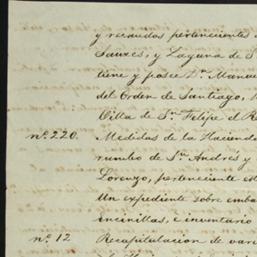 y recaudos pertenecientes a
Sauzes, y Laguna de S
tiene y posee Dn. Manue
del Orden de Santiago,
Villa de Sn. Felipe el R
no. 220. Medidas de la Haciend
rumbo de Sn. Andres y
Lorenzo, perteneciente al
Un expediente sobre emba
encinillas, é inventario
no. 12 Recapitulacion de vari